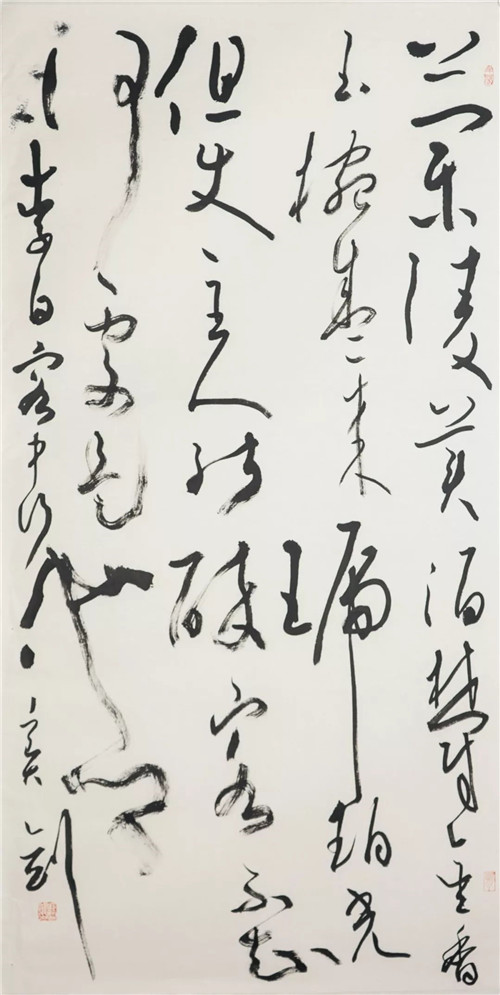 蘭陵美酒鬱金香
玉椀盛来琥珀光
但使主人能醉客不知
何處是他鄉
李白客中行